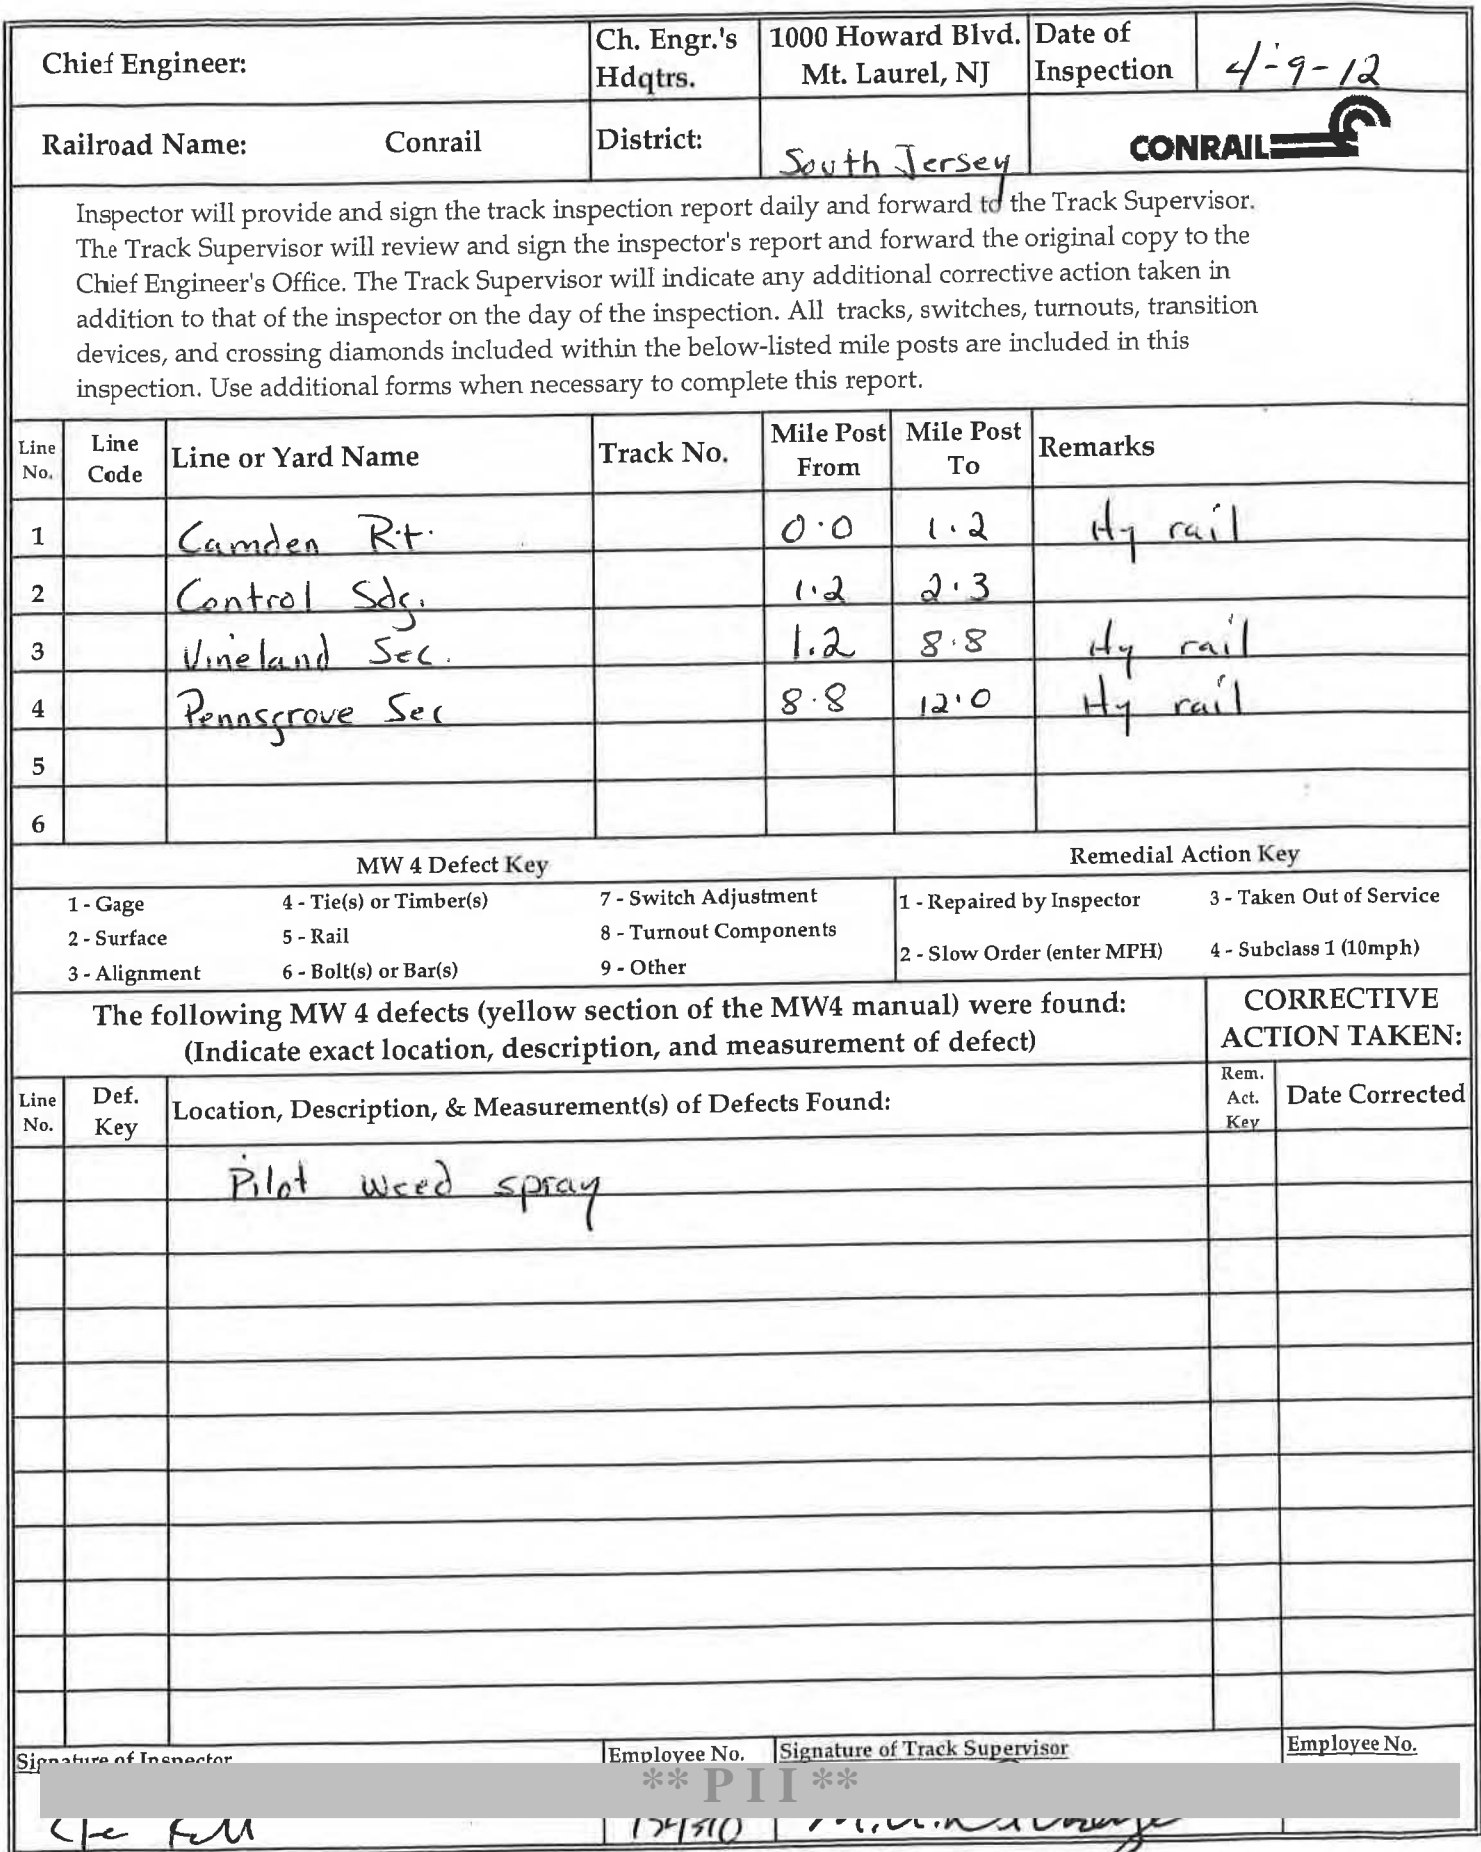 Chief Engineer:
Ch. Engr.'s Hdqtrs.
1000 Howard Blvd. Mt. Laurel, NJ
Date of Inspection
4-9-12
Railroad Name: Conrail
District:
South Jersey
CONRAIL
Inspector will provide and sign the track inspection report daily and forward to the Track Supervisor.
The Track Supervisor will review and sign the inspector's report and forward the original copy to the
Chief Engineer's Office. The Track Supervisor will indicate any additional corrective action taken in
addition to that of the inspector on the day of the inspection. All tracks, switches, turnouts, transition
devices, and crossing diamonds included within the below-listed mile posts are included in this
inspection. Use additional forms when necessary to complete this report.
Line No. Line Code Line or Yard Name Track No. Mile Post From Mile Post To Remarks
1 Camden R.t. 0.0 1.2 Hy rail
2 Control Sdg. 1.2 2.3
3 Vineland Sec. 1.2 8.8 Hy rail
4 Pennsgrove Sec 8.8 12.0 Hy rail
5
6
MW 4 Defect Key Remedial Action Key
1 - Gage 4 - Tie(s) or Timber(s) 7 - Switch Adjustment 1 - Repaired by Inspector 3 - Taken Out of Service
2 - Surface 5 - Rail 8 - Turnout Components
3 - Alignment 6 - Bolt(s) or Bar(s) 9 - Other 2 - Slow Order (enter MPH) 4 - Subclass 1 (10mph)
The following MW 4 defects (yellow section of the MW4 manual) were found:
(Indicate exact location, description, and measurement of defect)
CORRECTIVE
ACTION TAKEN:
Line No. Def. Key Location, Description, & Measurement(s) of Defects Found: Rem. Act. Key Date Corrected
Pilot weed spray
Signature of Inspector Employee No. Signature of Track Supervisor Employee No.
** P I I **